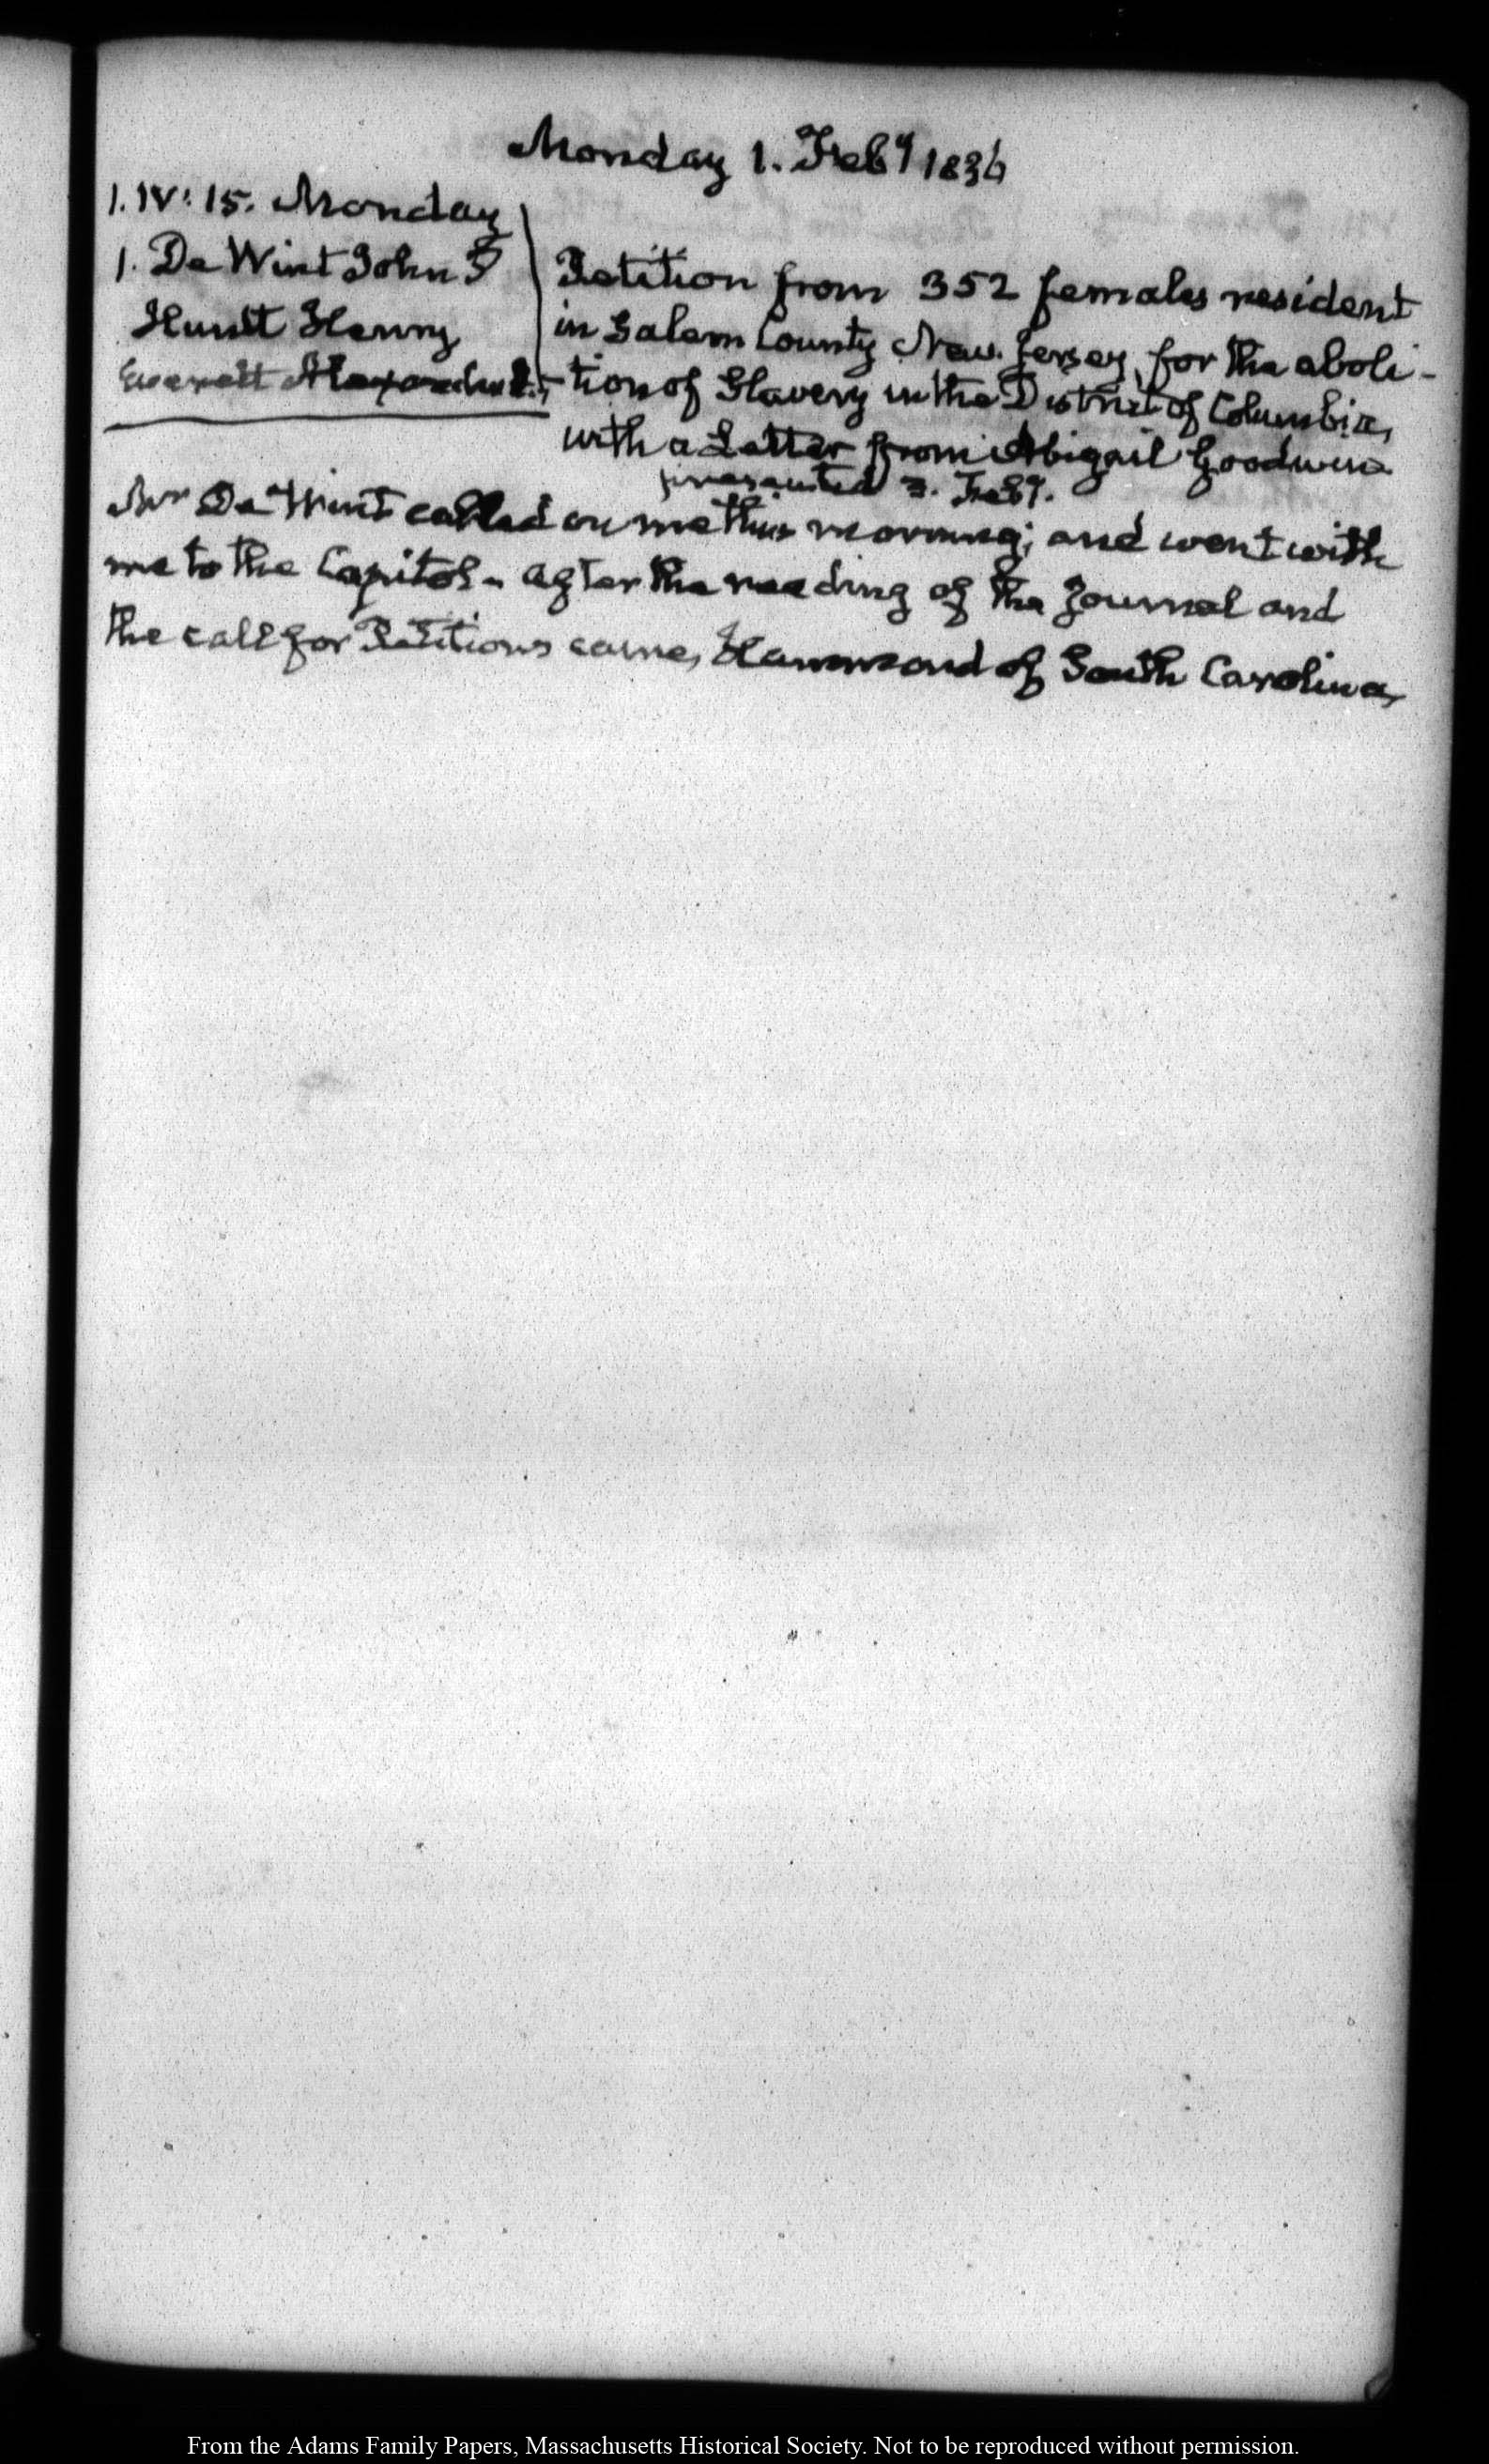 Monday 1. Feby 1836
1. IV: 15. Monday
1. De Wint John P
Hunt Henry
Everett Alexander H.
Petition from 352 females resident
in Salem County New Jersey, for the aboli-
tion of Slavery in the District of Columbia,
with a Letter from Abigail Goodwin
presented Feby.
Mr De Wint called on me this morning; and went with
me to the Capitol. after the reading of the Journal and
the call for Petitions came, Hammond of South Carolina,
From the Adams Family Papers, Massachusetts Historical Society. Not to be reproduced without permission.